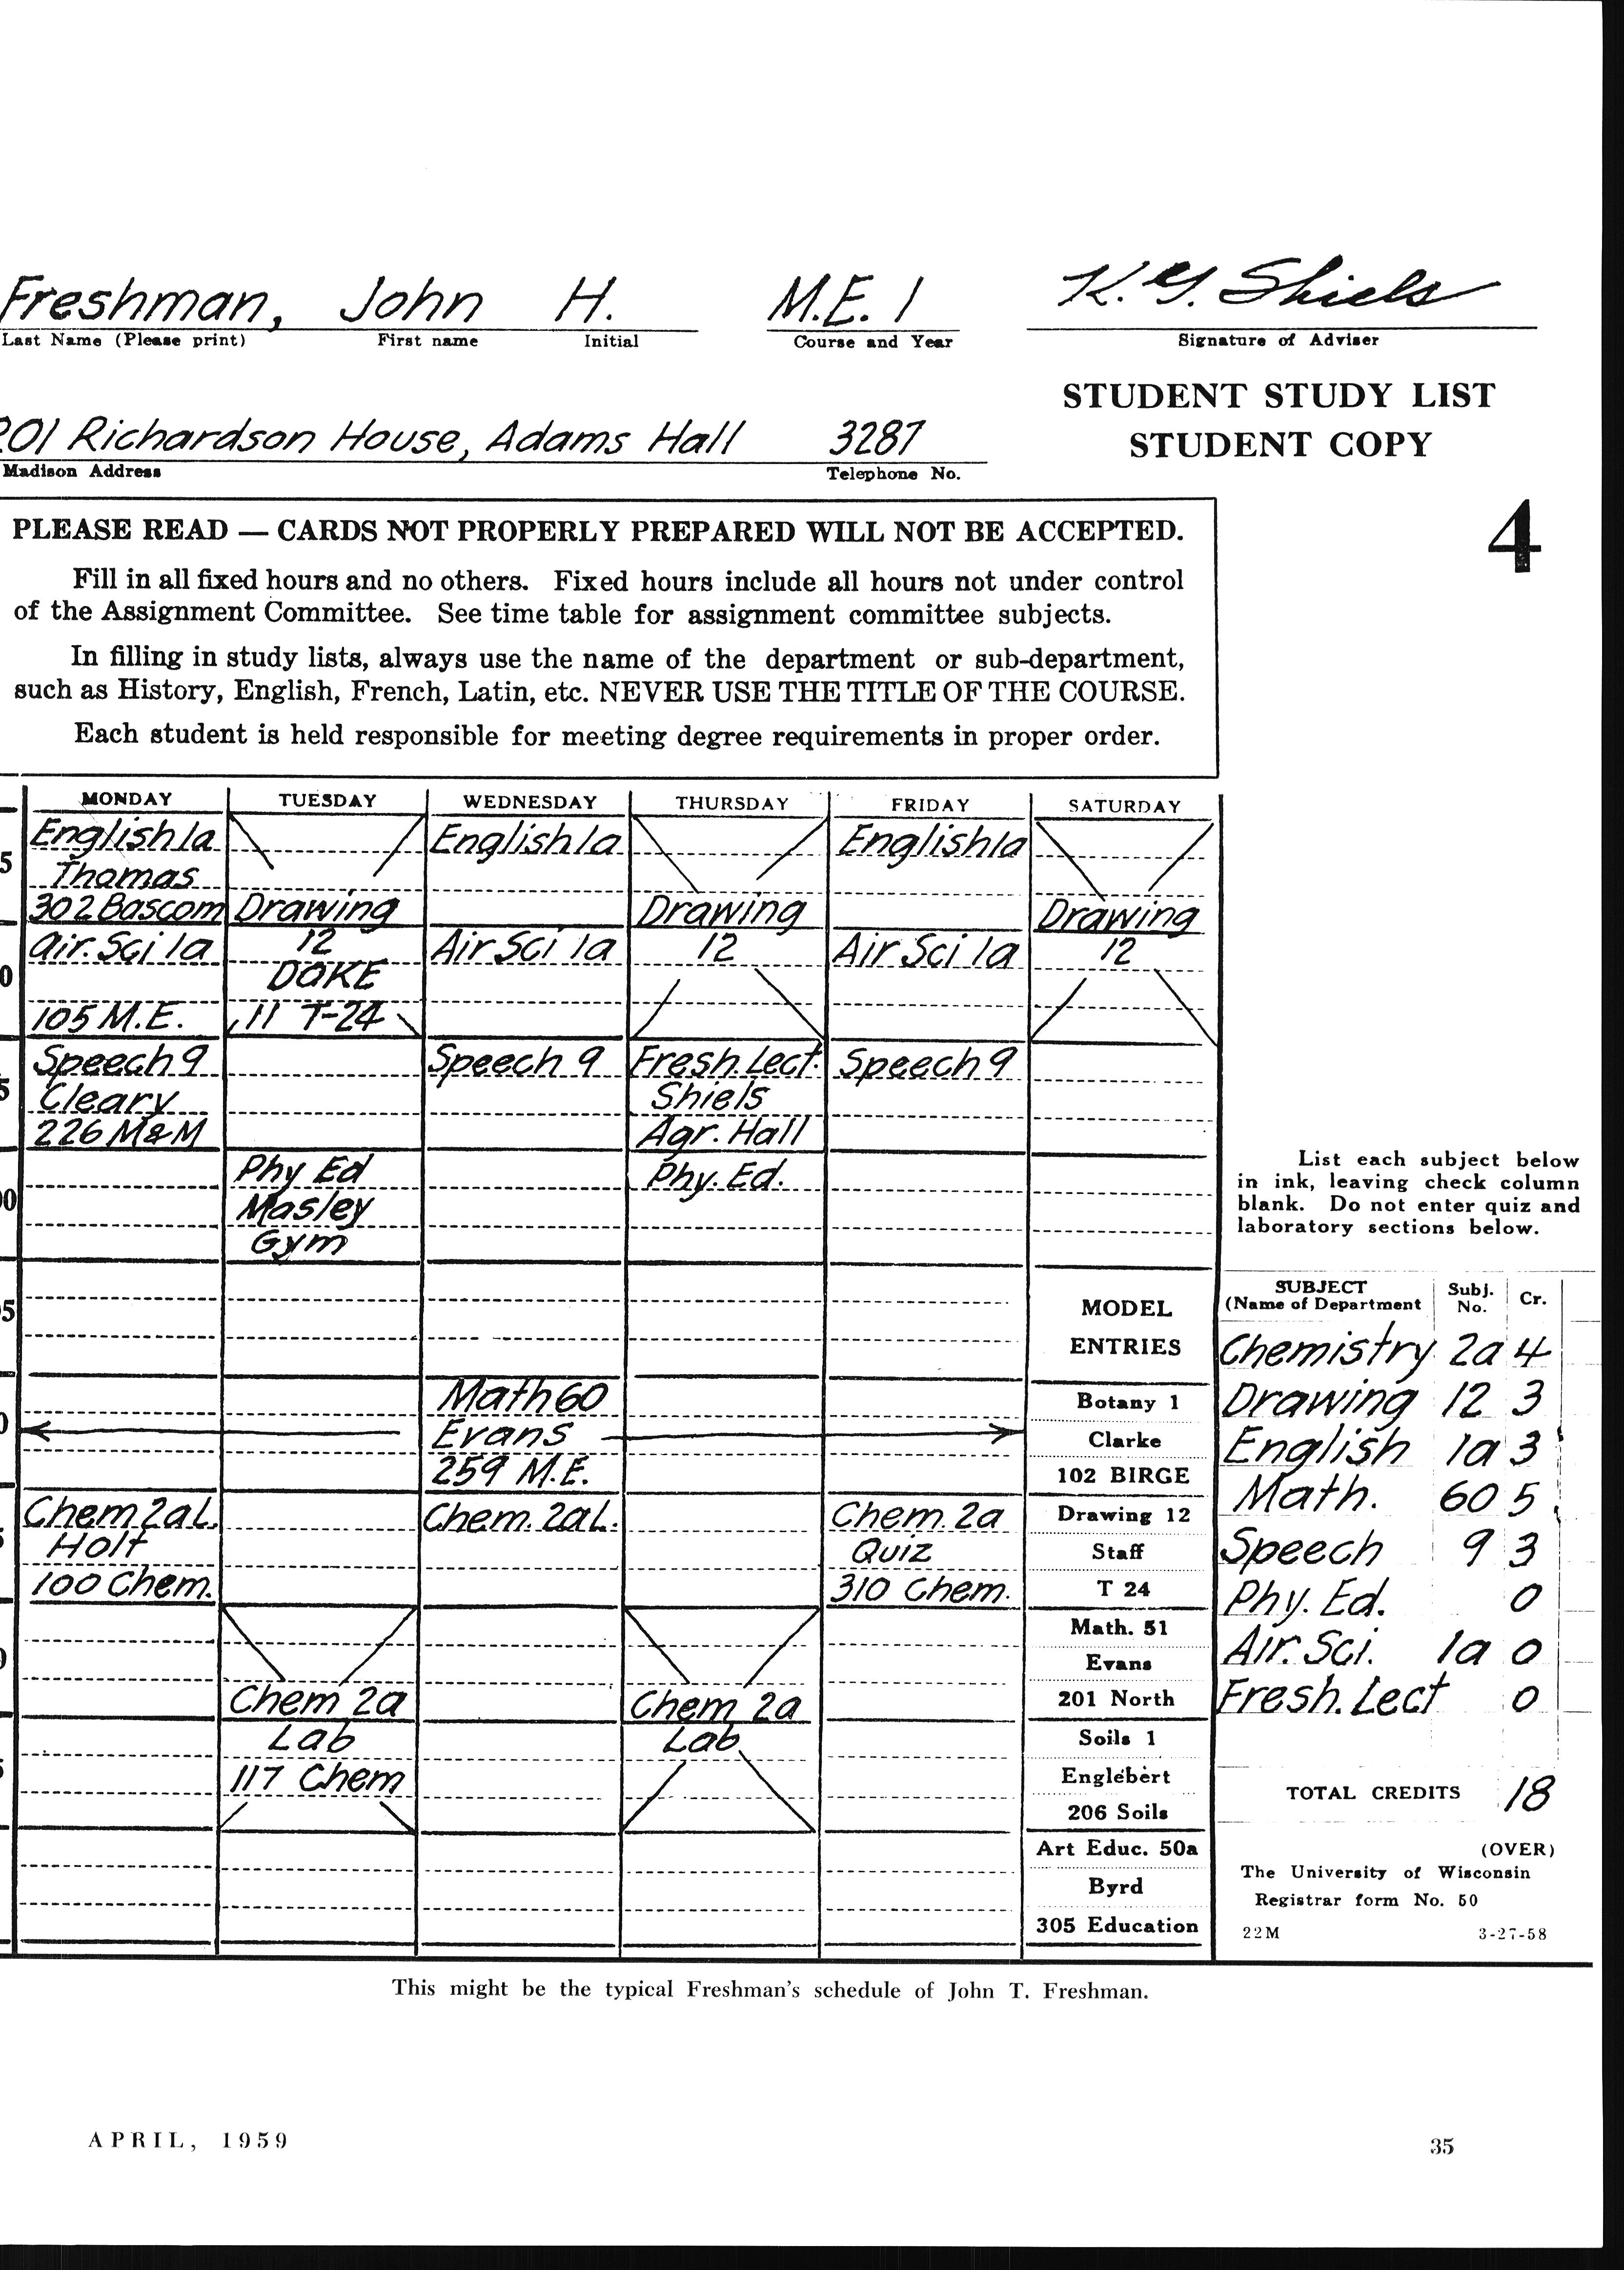 Freshman, John H. M.E. 1 K. G. Shiels
Last Name (Please print) First name Initial Course and Year Signature of Adviser
STUDENT STUDY LIST
STUDENT COPY
201 Richardson House, Adams Hall 3287
Madison Address Telephone No.
4
PLEASE READ — CARDS NOT PROPERLY PREPARED WILL NOT BE ACCEPTED.
Fill in all fixed hours and no others. Fixed hours include all hours not under control
of the Assignment Committee. See time table for assignment committee subjects.
In filling in study lists, always use the name of the department or sub-department,
such as History, English, French, Latin, etc. NEVER USE THE TITLE OF THE COURSE.
Each student is held responsible for meeting degree requirements in proper order.
MONDAY TUESDAY WEDNESDAY THURSDAY FRIDAY SATURDAY
English 1a English 1a English 1a
5 Thomas
302 Bascom Drawing Drawing Drawing
Air. Sci 1a 12 Air Sci 1a 12 Air Sci 1a 12
0 DOKE
105 M.E. 11 T-24
Speech 9 Speech 9 Fresh. Lect. Speech 9
5 Cleary Shiels
226 M&M Agr. Hall
Phy Ed Phy. Ed.
00 Masley
Gym
List each subject below
in ink, leaving check column
blank. Do not enter quiz and
laboratory sections below.
5 MODEL
ENTRIES
Math 60 Botany 1
0 Evans Clarke
259 M.E. 102 BIRGE
Chem 2a L. Chem. 2a L. Chem. 2a Drawing 12
5 Holt Quiz Staff
100 Chem. 310 Chem. T 24
Math. 51
0 Evans
Chem 2a Chem 2a 201 North
Lab Lab Soils 1
5 117 Chem Englebert
206 Soils
Art Educ. 50a
Byrd
305 Education
SUBJECT Subj. Cr.
(Name of Department No.
Chemistry 2a 4
Drawing 12 3
English 1a 3
Math. 60 5
Speech 9 3
Phy. Ed. 0
Air. Sci. 1a 0
Fresh. Lect 0
TOTAL CREDITS 18
(OVER)
The University of Wisconsin
Registrar form No. 50
22M 3-27-58
This might be the typical Freshman's schedule of John T. Freshman.
APRIL, 1959 35